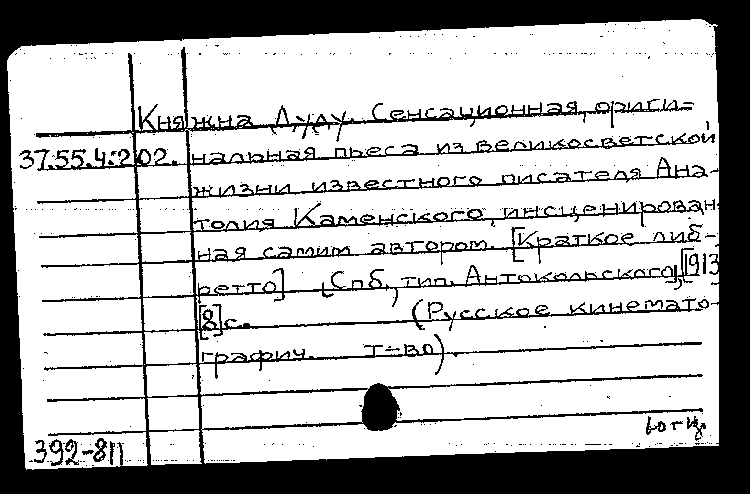 Княжна Дуду. Сенсационная, ориги-
37.55.4.202. нальная пьеса из великосветской
жизни известного писателя Ана-
толия Каменского, инсценирован-
ная самим автором. [Краткое либ-
ретто] [Спб., тип. Антокольского, [1913
[8]с. (Русское кинемато-
графич. т-во).
392-811